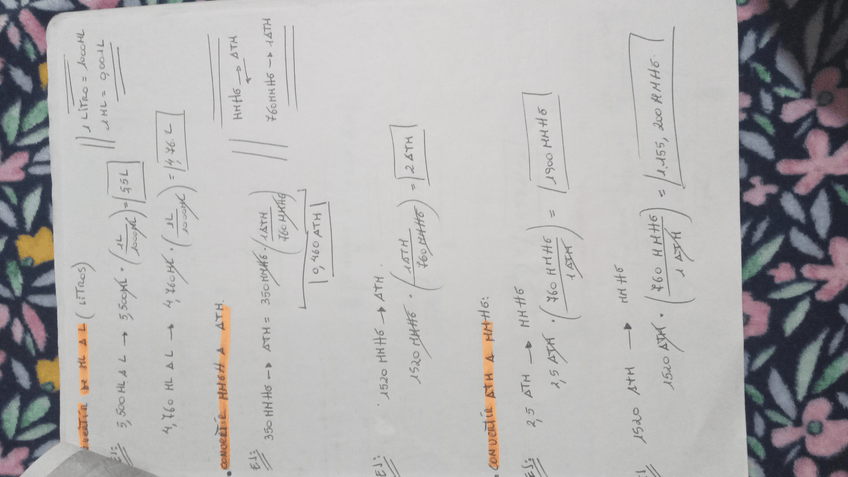 CONVERTIR DE ML A L (LITROS)
|| 1 LITRO = 1000ML
1 ML = 0,001L
EJ: 5,500 ML A L → 5,500ML • (1L / 1000ML) = 5,5L
4,760 ML A L → 4,760ML • (1L / 1000ML) = 4,76 L
• CONVERTIR MMHG A ATM.
MMHG → ATM
760MMHG → 1ATM
EJ: 350 MMHG → ATM = 350MMHG • (1ATM / 760MMHG)
0,460 ATM
EJ: • 1520 MMHG → ATM.
1520 MMHG • (1ATM / 760MMHG) = 2 ATM
• CONVERTIR ATM A MMHG:
EJ: 2,5 ATM → MMHG
2,5 ATM • (760 MMHG / 1ATM) = 1900 MMHG
EJ 1520 ATM → MMHG
1520 ATM • (760 MMHG / 1 ATM) = 1.155,200 MMHG.